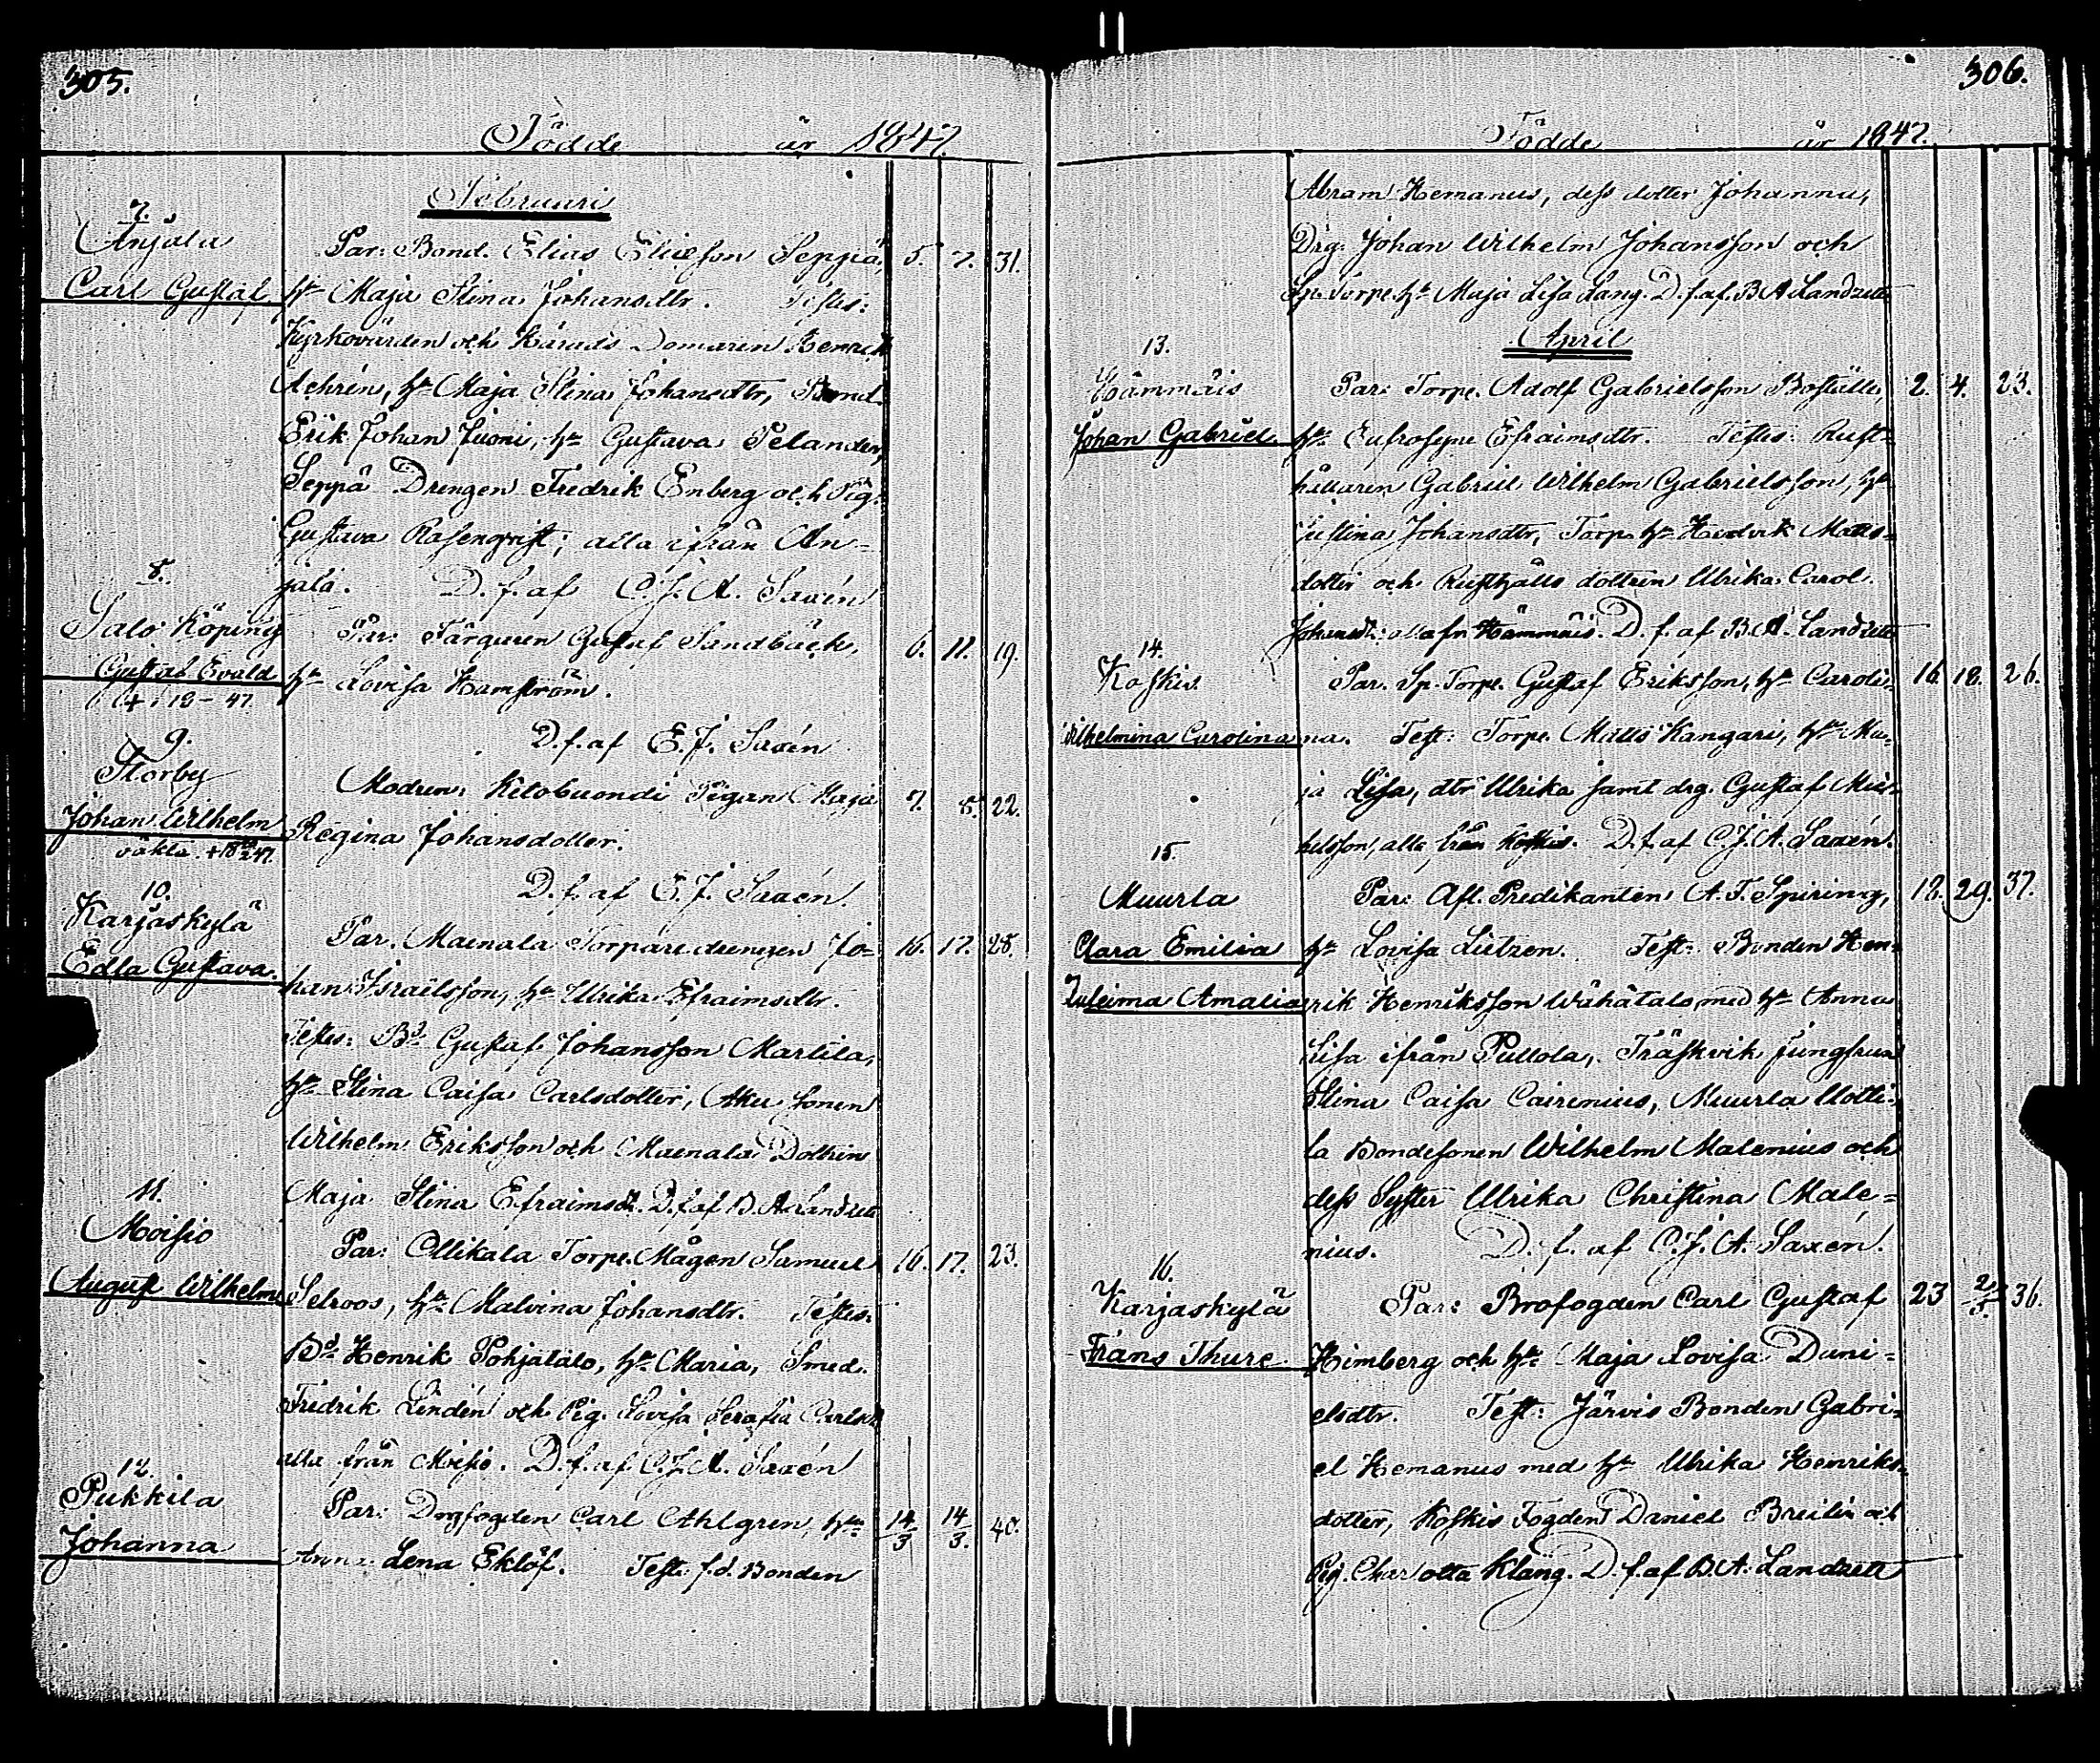 305.
Födde år 1847.
Februari
7.
Anjala
Carl Gustaf
Par: Bond. Elias Eliasson Seppä, 5. 7. 31.
hu Maja Stina Johansdtr. Testes:
Kyrkovärden och Härads Domaren Henrik
Achrén, hu Maja Stina Johansdtr, Bond.
Erik Johan Juoni, hu Gustava Pelander,
Seppä Drengen Fredrik Enberg och Pig.
Gustava Rosenqvist; alla ifrån An-
jala. D. f. af C. J. A. Saxén
8.
Salo Köping
Gustaf Evald
Par: Färgaren Gustaf Sandbäck, 6. 11. 19.
hu Lovisa Hamström.
D. f. af E. J. Saxén
9.
Storby
Johan Wilhelm
oäkta.
Modren: Ketobuondi Pigan Maja 7. 8. 22.
Regina Johansdotter.
D. f. af E. J. Saxén.
10.
Karjaskylä
Edla Gustava.
Par. Mainala Torpare drengen Jo- 16. 17. 28.
han Israelsson, hu Ulrika Efraimsdtr.
Testes: Bd Gustaf Johansson Martila,
hu Stina Caisa Carlsdotter, Aku sonen
Wilhelm Eriksson och Mainala Dottren
Maja Stina Efraimsdt. D. f. af B. A. Landzett
11.
Moisio
August Wilhelm
Par: Ollikala Torpe. Mågen Samuel 16. 17. 23.
Selroos, hu Malvina Johansdtr. Testes:
Bd Henrik Pohjatalo, hu Maria, Smed.
Fredrik Lindén och Pig. Lovisa Serafia Carlsd
alla från Moisio. D. f. af C. J. A. Saxén
12.
Pukkila
Johanna
Par: Drgfogden Carl Ahlgren, hu 14/3 14/3. 40.
Anna Lena Eklöf. Test: f. d. Bonden
306.
Födde år 1847.
Abram Hemanus, dess dotter Johanna,
Drg. Johan Wilhelm Johansson och
Sp. Torpe. hu Maja Lisa Lang. D. f. af. B A Landzett
April
13.
Hämmäis
Johan Gabriel
Par: Torpe. Adolf Gabrielsson Boställe, 2. 4. 23.
hu Eufrosyne Efraimsdtr. Testes: Rust-
hållaren Gabriel Wilhelm Gabrielsson, hu
Justina Johansdtr, Torp. hu Hedvik Matts-
dotter och Rusthålls dottren Ulrika Carol.
Johansdt: alla fr Hämmäis. D. f. af B. A. Landzett
14.
Koskis
Wilhelmina Carolina
Par. Sp. Torpe. Gustaf Eriksson, hu Caroli- 16. 18. 26.
na. Test: Torpe. Matts Kangari, hu Ma-
ja Lisa, dtr Ulrika samt drg. Gustaf Mic-
helsson, alla från Koskis. D. f. af C. J. A. Saxén.
15.
Muurla
Clara Emilia
Zuleima Amalia
Par: Afl. Predikanten A. F. Spiring, 18. 29. 37.
hu Lovisa Lützen. Test: Bonden Hen-
rik Henriksson Wähätalo, med hu Anna
Lisa ifrån Pullola, Träskvik Jungfrun
Stina Caisa Cairenius, Muurla Uotti-
la Bondesonen Wilhelm Malenius och
dess Syster Ulrika Christina Male-
nius. D. f. af C. J. A. Saxén.
16.
Karjaskylä
Frans Thure
Par: Brofogden Carl Gustaf 23 2/5. 36.
Himberg och hu Maja Lovisa Dani-
elsdtr. Test: Järvis Bonden Gabri-
el Hemanus med hu Ulrika Henriks-
dotter, Koskis Fogden Daniel Breilin och
Pig. Charlotta Kläng. D. f. af B. A. Landzett